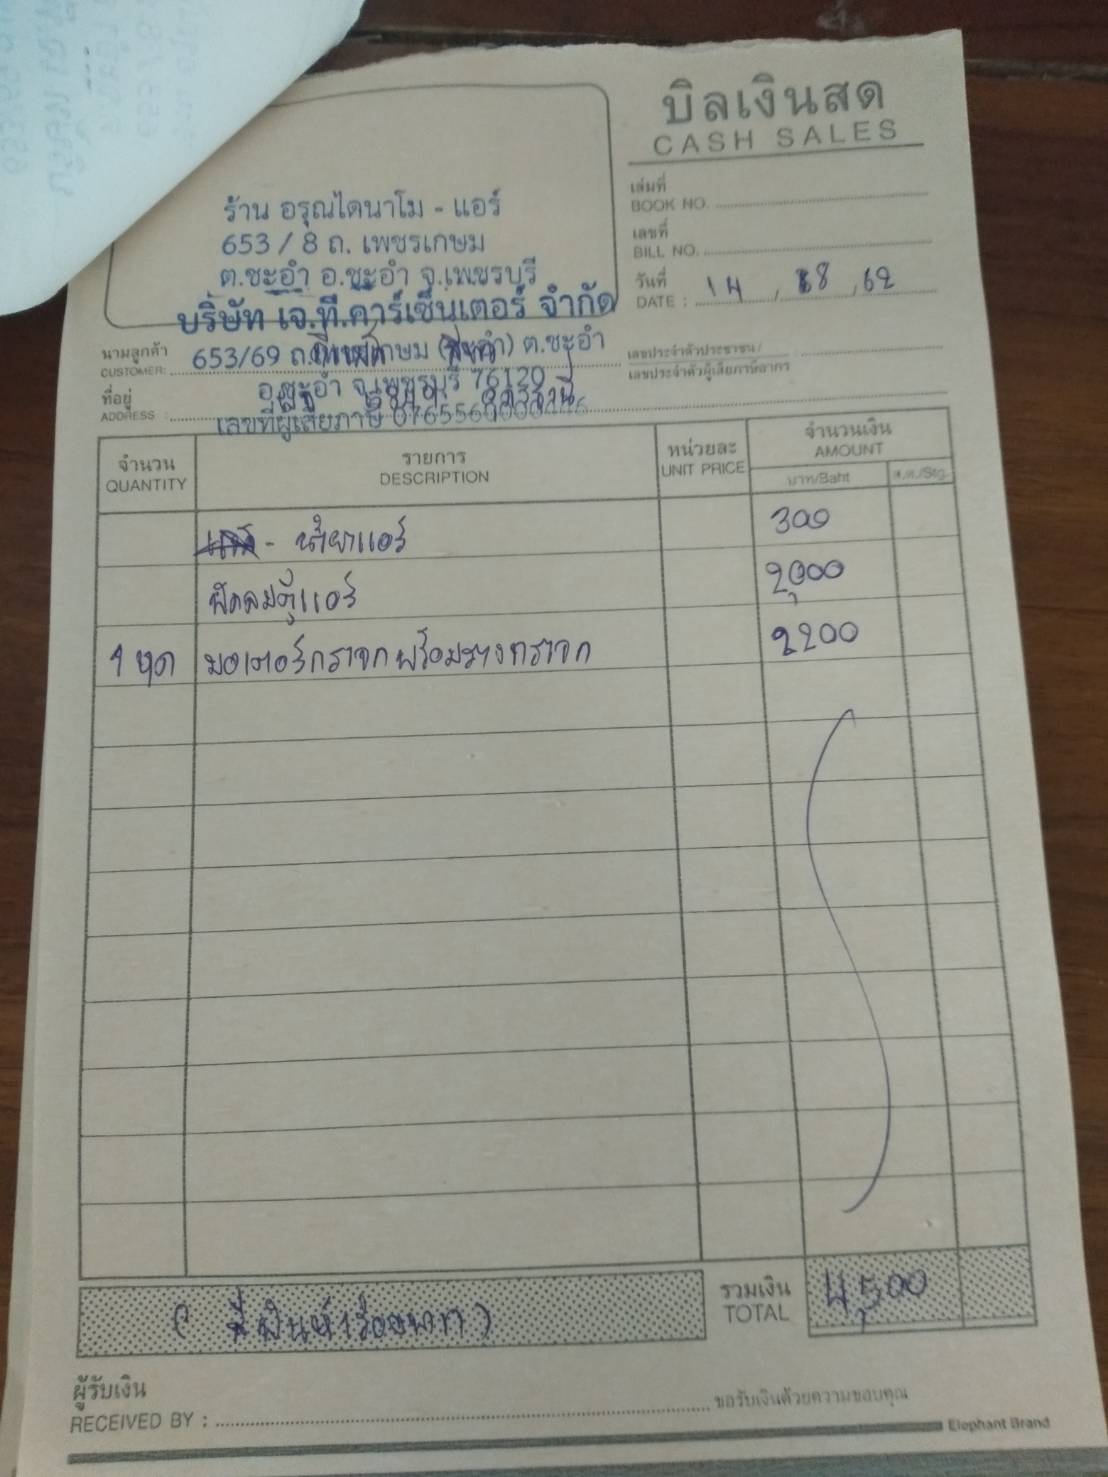 บิลเงินสด
CASH SALES
เล่มที่
BOOK NO.
เลขที่
BILL NO.
วันที่
DATE : 14 / 8 / 62
ร้าน อรุณไดนาโม - แอร์
653 / 8 ถ. เพชรเกษม
ต.ชะอำ อ.ชะอำ จ.เพชรบุรี
บริษัท เจ.ที.คาร์เซ็นเตอร์ จำกัด
653/69 ถ. ต.ชะอำ
อ.ชะอำ จ.เพชรบุรี 76120
เลขที่ผู้เสียภาษี
นามลูกค้า
CUSTOMER:
ที่อยู่
ADDRESS :
เลขประจำตัวประชาชน/
เลขประจำตัวผู้เสียภาษีอากร
จำนวน รายการ หน่วยละ จำนวนเงิน
QUANTITY DESCRIPTION UNIT PRICE AMOUNT
บาท/Baht ส.ต./Stg.
- น้ำยาแอร์ 300
พัดลมตู้แอร์ 2,000
1 ชุด มอเตอร์กระจกพร้อมรางกระจก 2200
รวมเงิน
TOTAL 4,500
ผู้รับเงิน
RECEIVED BY :
ขอรับเงินด้วยความขอบคุณ
Elephant Brand